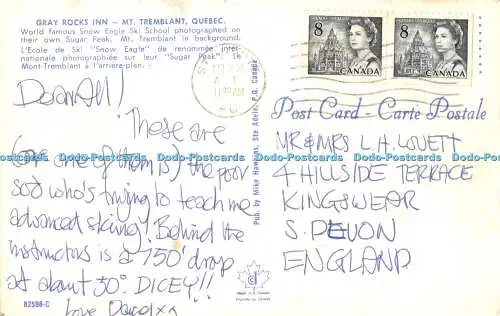 GRAY ROCKS INN ~ MT. TREMBLANT, QUEBEC.
World famous Snow Eagle Ski School photographed on
their own Sugar Peak. Mt. Tremblant in background.
L'Ecole de Ski "Snow Eagle" de renommée inter-
nationale photographiée sur leur "Sugar Peak". Le
Mont-Tremblant à l'arrière-plan.
8
CANADA
8
CANADA
Dear All!
These are
(one of them is) the poor
sod who's trying to teach me
advanced skiing! Behind the
instructors is a 750' drop
at about 30° DICEY!!
love David xx
82598-C
Pub. by Mike Hawkins, Ste Adele, P.Q. Canada
Post Card - Carte Postale
MR & MRS L.H. LOVETT
4 HILLSIDE TERRACE
KINGSWEAR
S. DEVON
ENGLAND
Dodo-Postcards Dodo-Postcards Dodo-Postcards Dodo-Postcards